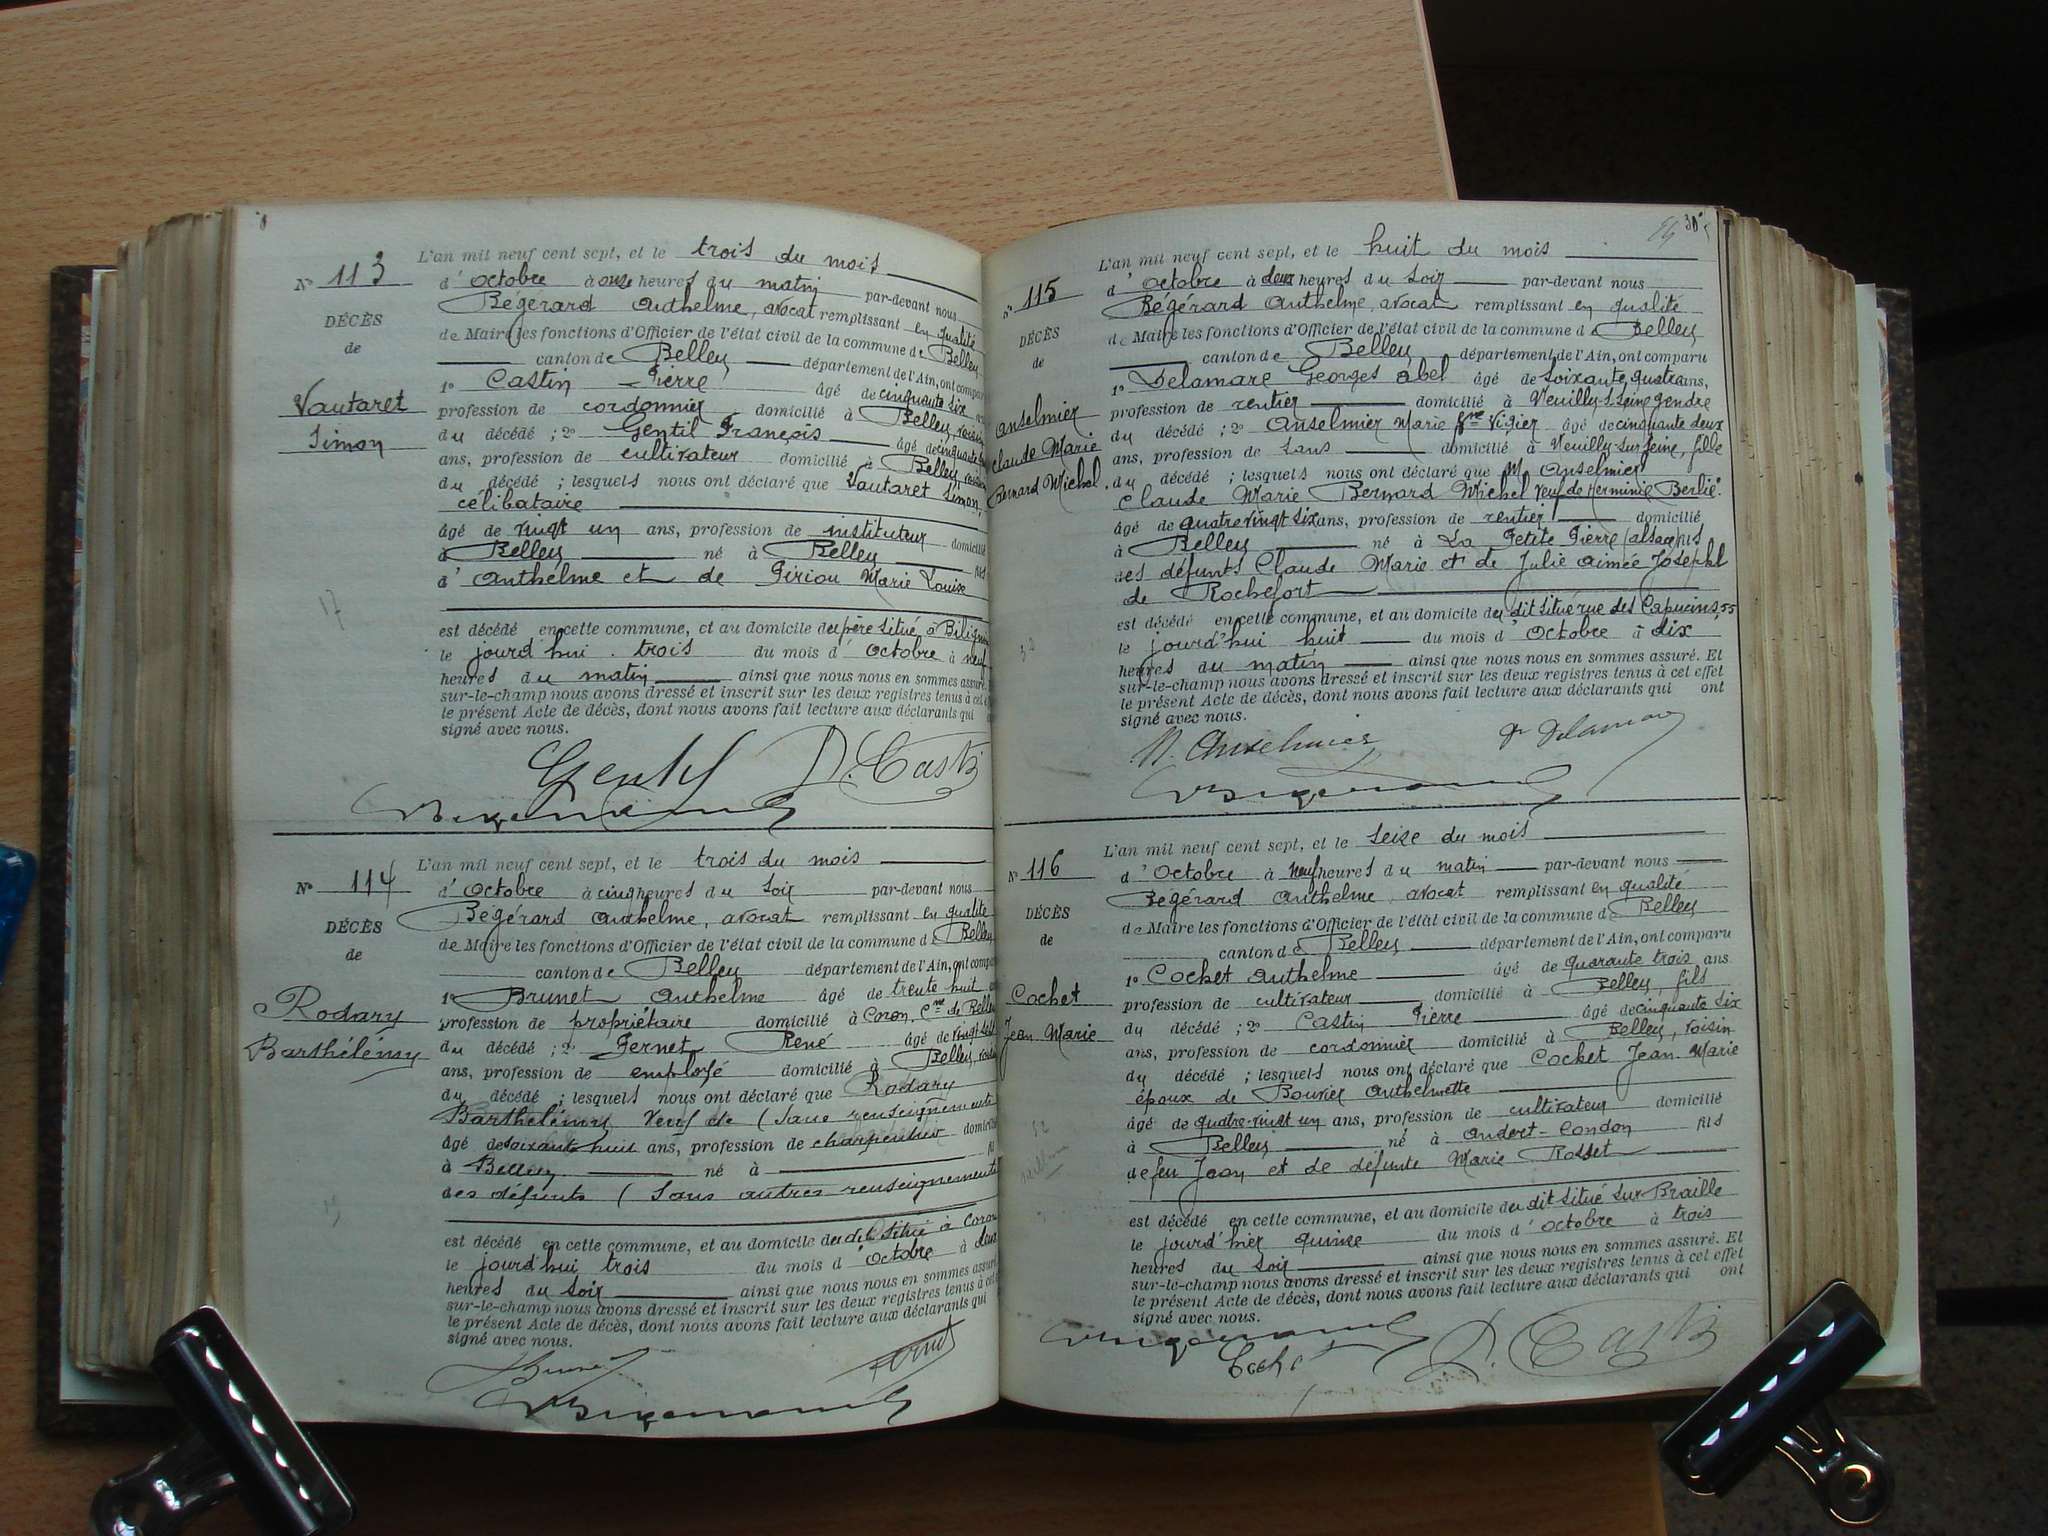 N° 113
DÉCÈS
de
Vautaret
Simon
L'an mil neuf cent sept, et le trois du mois
d'Octobre à onze heures du matin par-devant nous
Bégérard Anthelme, avocat remplissant en qualité
de Maire les fonctions d'Officier de l'état civil de la commune de Belley
canton de Belley département de l'Ain, ont comparu
1° Castin Pierre âgé de cinquante six
profession de cordonnier domicilié à Belley, voisin
du décédé ; 2° Gentil François âgé de cinquante
ans, profession de cultivateur domicilié à Belley, voisin
du décédé ; lesquels nous ont déclaré que Vautaret Simon,
célibataire
âgé de vingt un ans, profession de instituteur domicilié
à Belley né à Belley fils
d'Anthelme et de Piriou Marie Louise
est décédé en cette commune, et au domicile du père situé à
le jourd'hui trois du mois d'Octobre à neuf
heures du matin ainsi que nous nous en sommes assuré.
sur-le-champ nous avons dressé et inscrit sur les deux registres tenus à cet
le présent Acte de décès, dont nous avons fait lecture aux déclarants qui
signé avec nous.
Gentil P. Casti
N° 114
DÉCÈS
de
Rodary
Barthélémy
L'an mil neuf cent sept, et le trois du mois
d'Octobre à cinq heures du soir par-devant nous
Bégérard Anthelme, avocat remplissant en qualité
de Maire les fonctions d'Officier de l'état civil de la commune de Belley
canton de Belley département de l'Ain, ont comparu
1° Brunet Anthelme âgé de trente huit
profession de propriétaire domicilié à Coron, Cne de Belley
du décédé ; 2° Fernet René âgé de vingt
ans, profession de employé domicilié à Belley,
du décédé ; lesquels nous ont déclaré que Rodary
Barthélémy veuf de (sans renseignements
âgé de soixante huit ans, profession de charpentier domicilié
à Belley né à
des défunts (sans autres renseignements
est décédé en cette commune, et au domicile du dit situé à Coron
le jourd'hui trois du mois d'Octobre à deux
heures du soir ainsi que nous nous en sommes assuré
sur-le-champ nous avons dressé et inscrit sur les deux registres tenus à cet
le présent Acte de décès, dont nous avons fait lecture aux déclarants qui
signé avec nous.
N° 115
DÉCÈS
de
Anselmier
Claude Marie
Bernard Michel.
L'an mil neuf cent sept, et le huit du mois
d'Octobre à deux heures du soir par-devant nous
Bégérard Anthelme, avocat remplissant en qualité
de Maire les fonctions d'Officier de l'état civil de la commune de Belley
canton de Belley département de l'Ain, ont comparu
1° Delamare Georges Abel âgé de soixante quatre ans,
profession de rentier domicilié à Neuilly s Seine gendre
du décédé ; 2° Anselmier Marie fme Vigier âgé de cinquante deux
ans, profession de sans domicilié à Neuilly-sur-Seine, fille
du décédé ; lesquels nous ont déclaré que M. Anselmier
Claude Marie Bernard Michel veuf de Herminie Berlié
âgé de quatre vingt six ans, profession de rentier domicilié
à Belley né à La Petite Pierre (Alsace) fils
des défunts Claude Marie et de Julie Aimée Josephe
de Rochefort
est décédé en cette commune, et au domicile du dit situé rue des Capucins, 55
le jourd'hui huit du mois d'Octobre à dix
heures du matin ainsi que nous nous en sommes assuré. Et
sur-le-champ nous avons dressé et inscrit sur les deux registres tenus à cet effet
le présent Acte de décès, dont nous avons fait lecture aux déclarants qui ont
signé avec nous.
M. Anselmier
N° 116
DÉCÈS
de
Cochet
Jean Marie
L'an mil neuf cent sept, et le seize du mois
d'Octobre à neuf heures du matin par-devant nous
Bégérard Anthelme, avocat remplissant en qualité
de Maire les fonctions d'Officier de l'état civil de la commune de Belley
canton de Belley département de l'Ain, ont comparu
1° Cochet Anthelme âgé de quarante trois ans
profession de cultivateur domicilié à Belley, fils
du décédé ; 2° Castin Pierre âgé de cinquante six
ans, profession de cordonnier domicilié à Belley, voisin
du décédé ; lesquels nous ont déclaré que Cochet Jean-Marie
époux de Bouvier Anthelmette
âgé de quatre-vingt un ans, profession de cultivateur domicilié
à Belley né à Andert-Condon fils
de feu Jean et de défunte Marie Rosset
est décédé en cette commune, et au domicile du dit situé sur Braille
le jourd'hier quinze du mois d'Octobre à trois
heures du soir ainsi que nous nous en sommes assuré. Et
sur-le-champ nous avons dressé et inscrit sur les deux registres tenus à cet effet
le présent Acte de décès, dont nous avons fait lecture aux déclarants qui ont
signé avec nous.
P. Casti